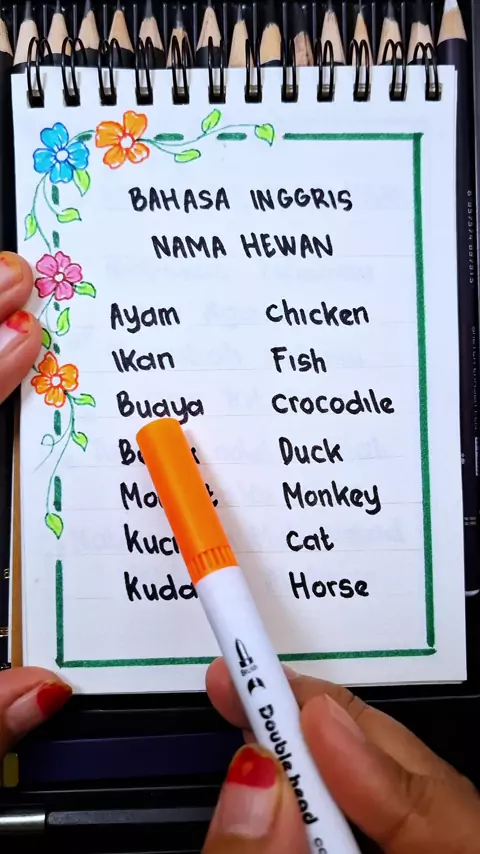 BAHASA INGGRIS
NAMA HEWAN
Ayam Chicken
Ikan Fish
Buaya Crocodile
Duck
Monkey
Cat
Kuda Horse
Brush
Double head